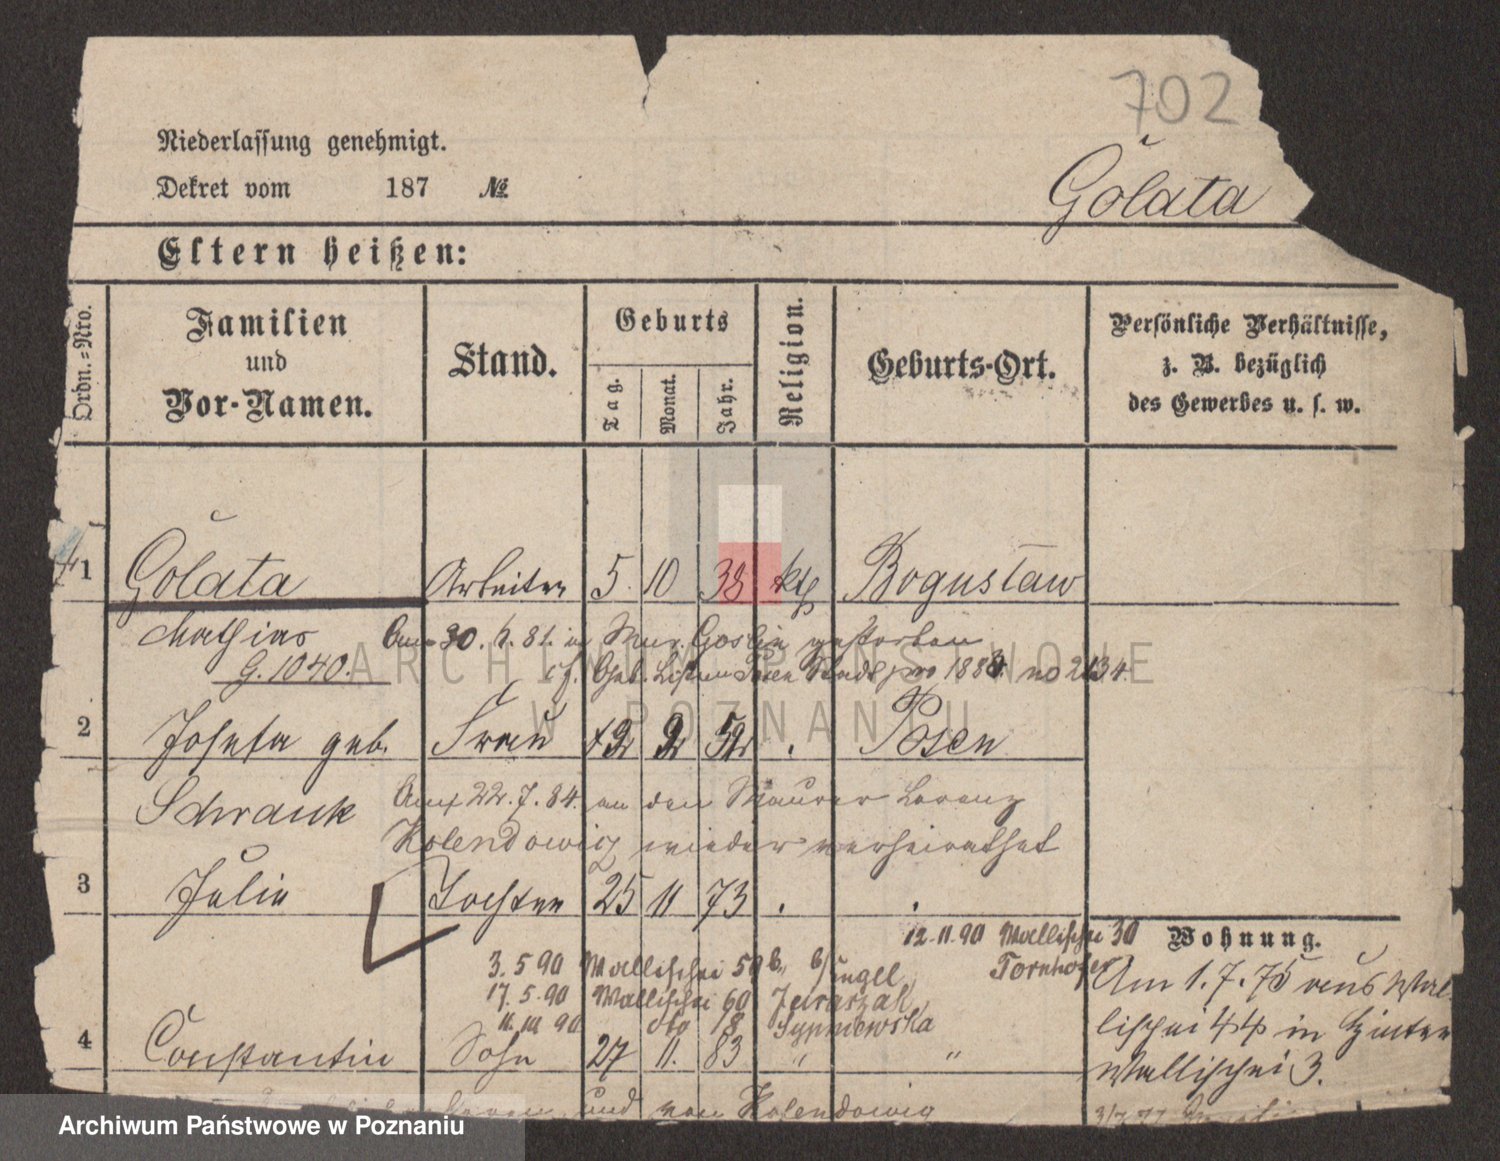 702
Niederlassung genehmigt.
Dekret vom 187 №
Golata
Eltern heißen:
Ordn.=Nro.
Familien
und
Vor-Namen.
Stand.
Geburts
Tag.
Monat.
Jahr.
Religion.
Geburts-Ort.
Persönliche Verhältnisse,
z. B. bezüglich
des Gewerbes u. s. w.
1 Golata Arbeiter 5. 10 38 kth Bogusław
Mathias Am 30. 81. in Mur. Goslin gestorben
G. 1040. cf. Geb. Listen Posen Stadt pro 188 no 2134.
2 Josefa geb. Frau 2 52 . Posen
Schrank Am 22.7.84. an den Maurer Lorenz
Kolendowicz wieder verheirathet
3 Julie Tochter 25 11 73 . .
12.11.90 Wallischei 30
Tornhofer
Wohnung.
3.5.90 Wallischei 59b,
17.5.90 Wallischei 60
90 dto 18
4 Constantin Sohn 27 11. 83 " "
Am 1.7.75 aus Wal-
lischei 44 in Hinter
Wallischei 3.
und von Kolendowicz
ARCHIWUM PAŃSTWOWE
W POZNANIU
Archiwum Państwowe w Poznaniu